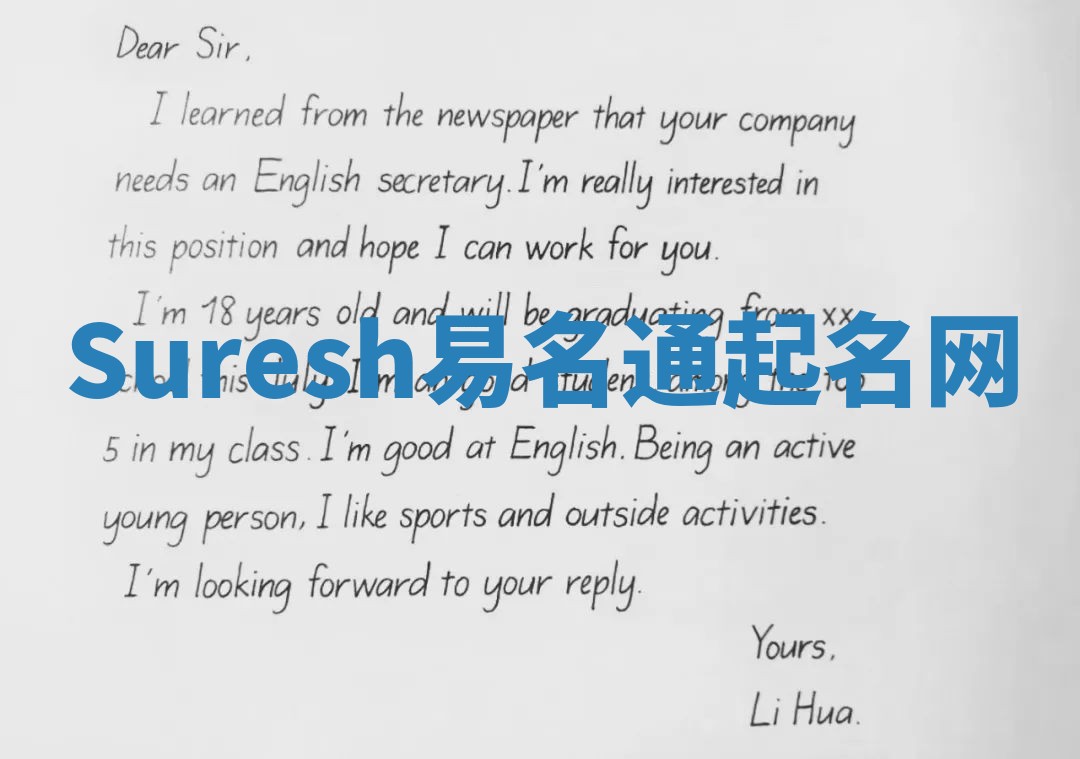 Dear Sir,
I learned from the newspaper that your company
needs an English secretary. I'm really interested in
this position and hope I can work for you.
I'm 18 years old and will be graduating from xx
Suresh易名通起名网
this July. I'm a good student among the top
5 in my class. I'm good at English. Being an active
young person, I like sports and outside activities.
I'm looking forward to your reply.
Yours,
Li Hua.